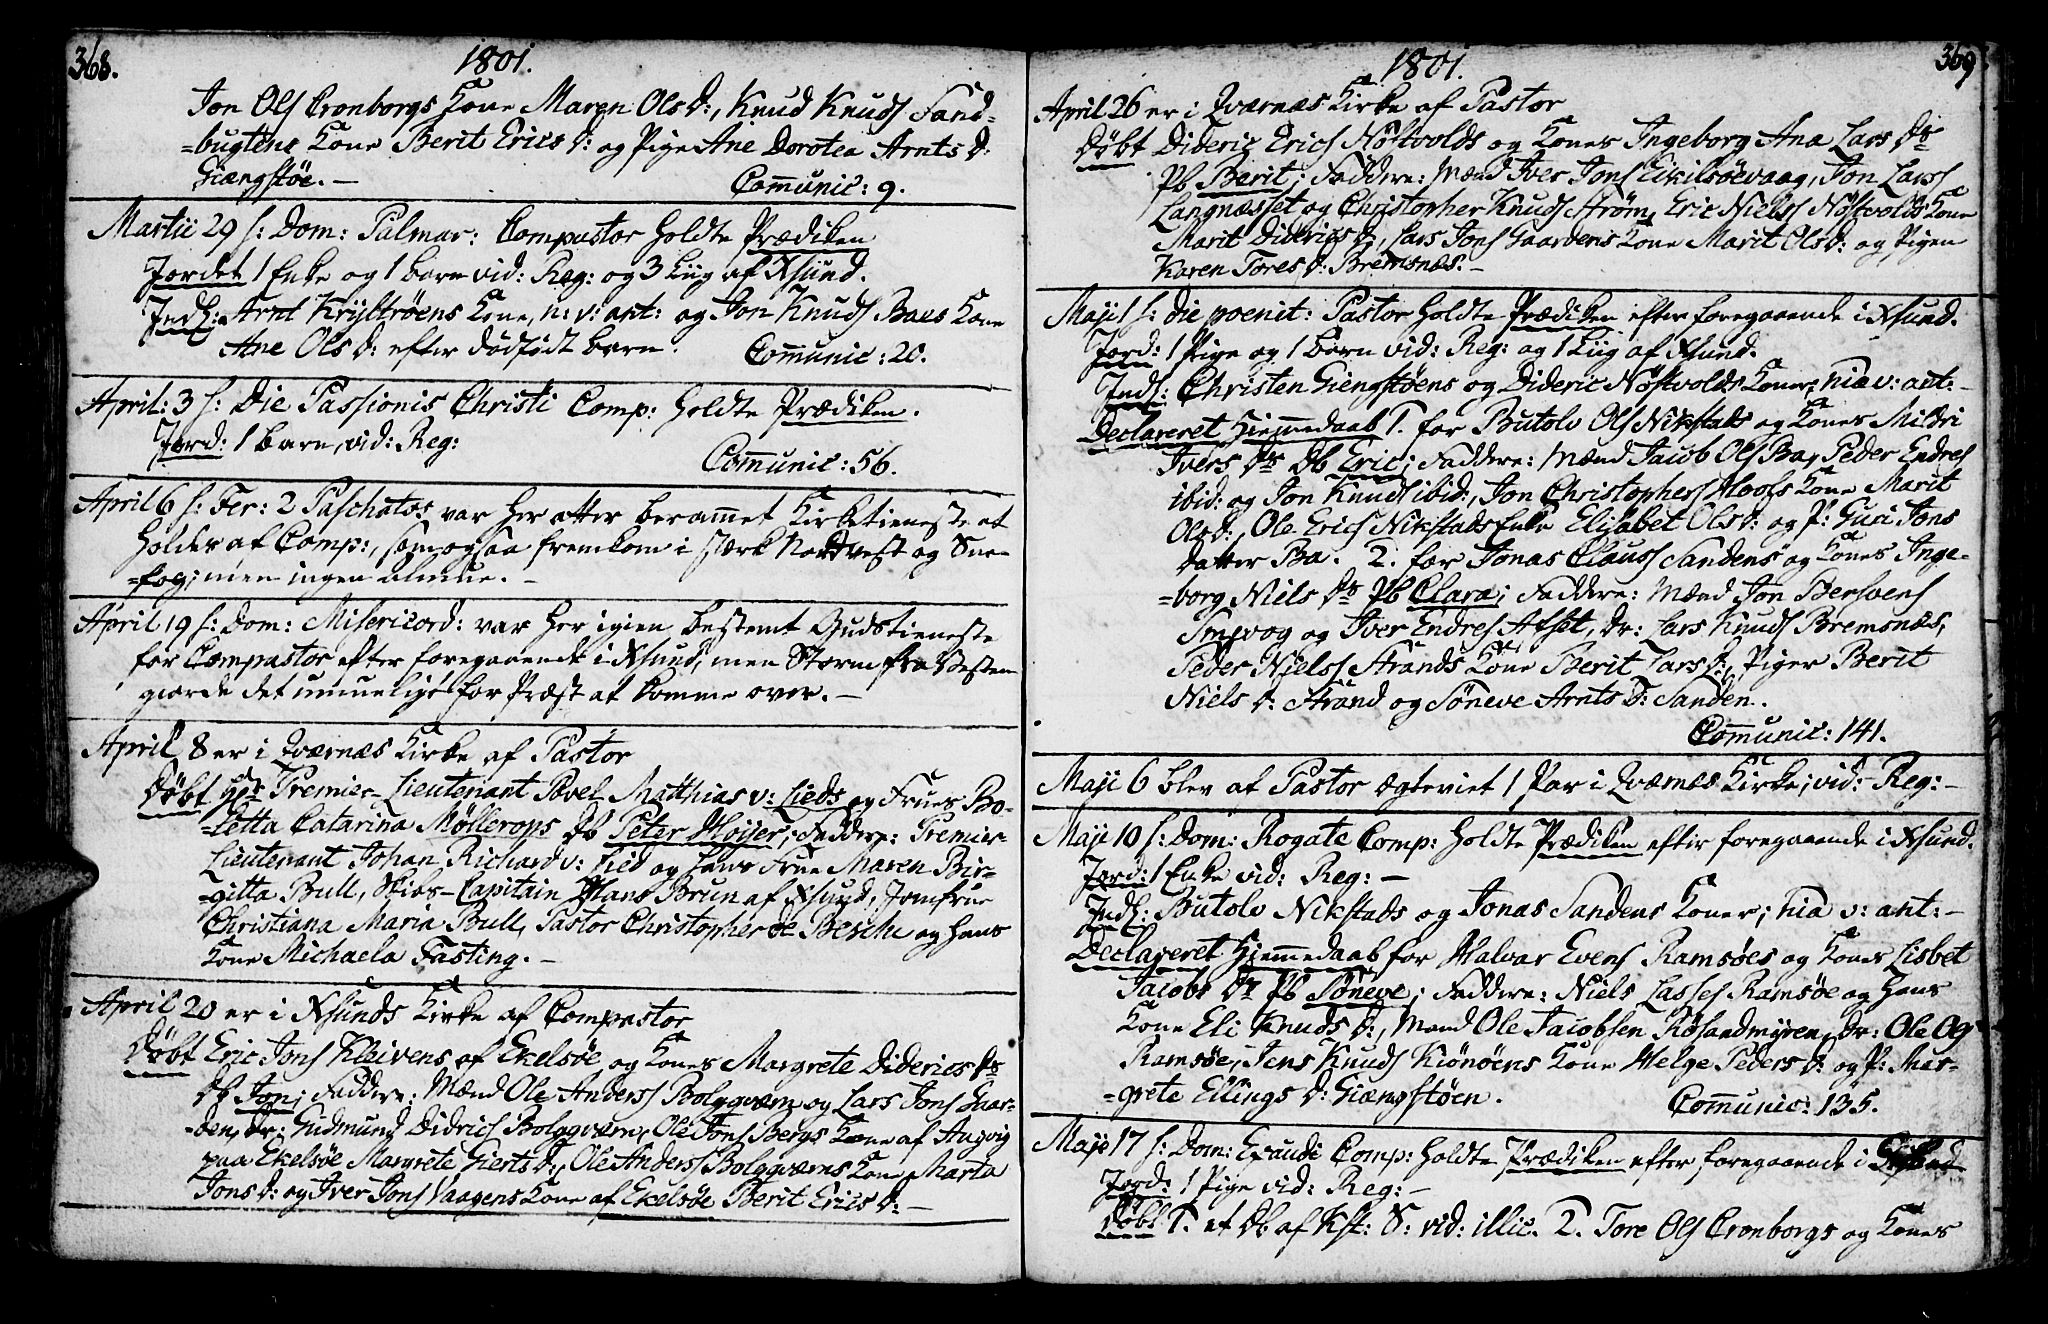 368.
1801.
Jon Ols Cronborgs Kone Maren Ols D:, Knud Knuds Sand-
=bugtens Kone Berit Erics D: og Pige Ane Dorotea Arnts D:
Giængstøe. –
Com̅unic: 9.
Martii 29 f: Dom: Palmar: Compastor holdte Prædiken
Jordet 1 Enke og 1 barn vid: Reg: og 3 Liig af Xsund.
Indl: Arnt Kryltrøens Kone, n: v: ant: og Jon Knuds Baes Kone
Ane Ols D: efter dødfødt barn.
Com̅unic: 20.
April: 3 f: Die Passionis Christi Comp: holdte Prædiken.
Jord: 1 barn, vid: Reg:
Com̅unic: 56.
April 6 f: Fer: 2 Paschatos var her atter beram̅et Kirketieneste at
holdes af Comp:, som ogsaa fremkom i stærk Nordvest og Snee-
=fog; men ingen Almue. –
April 19 f: Dom: Misericord: var her igien bestemt Gudstieneste
for Compastor efter foregaaende i Xsund, men Storm fra Vesten
giorde det umueligt for Præst at komme over. –
April 8 er i Qværnæs Kirke af Pastor
Døbt Hr Premier-Lieutenant Povel Matthias v: Lieds og Frues Bo-
=letta Catarina Møllerops Db Peter Høyer; Faddere: Premier-
Lieutenant Johan Richard v: Lied og hans Frue Maren Bir-
=gitta Bull, Skibs-Capitain Hans Brun af Xsund, Jomfrue
Christiana Maria Bull, Pastor Christopher de Besche og hans
Kone Michaela Fasting. –
April 20 er i Xsunds Kirke af Compastor
Døbt Eric Jons Kleivens af Ekelsøe og Kones Margrete Diderics Dr
Db Jon; Faddere: Mænd Ole Anderss Bolggværn og Lars Jons Gaar-
=den, Dr: Gudmund Didrics Bolggværn, Ole Jons Bergs Kone af Augvig
paa Ekelsøe Margrete Gierts D:, Ole Anderss Bolggværns Kone Marta
Jons D: og Iver Jons Vaagens Kone af Ekelsøe Berit Erics D: –
369
1801.
April 26 er i Qværnæs Kirke af Pastor
Døbt Dideric Erics Nøstvolds og Kones Ingeborg Ana Lars Dr
Pb Berit; Faddere: Mænd Iver Jons Eikilsøevaag, Jon Larss
Langnæsset og Christopher Knuds Strøm, Eric Nielss Nøstvolds Kone
Marit Diderics D:, Lars Jons Gaardens Kone Marit Ols D: og Pigen
Karen Tores D: Bremsnæs. –
Maji 1 f: die poenit: Pastor holdte Prædiken efter foregaaende i Xsund.
Jord: 1 Pige og 1 barn vid: Reg: og 1 Liig af Xsund.
Indl: Christen Giengstøens og Dideric Nøstvolds Koner; hia v: ant: –
Declareret Hiem̅edaab 1. for Butolv Ols Nikstads og Kones Mildri
Ivers Dr Db Eric; Faddere: Mænd Jacob Ols Ba, Peder Endres
ibid: og Jon Knuds ibid:, Jon Christophers Moes Kone Marit
Ols D:, Ole Erics Nikstads Enke Elisabet Ols D: og P: Guri Jons
datter Ba. 2. for Jonas Clauss Sandens og Kones Inge-
=borg Niels Dr Pb Clara; Faddere: Mænd Jon Bersvens
Smevog og Iver Endres Afset, Dr: Lars Knuds Bremsnæs,
Peder Nielss Strands Kone Berit Lars D:, Piger Berit
Niels D: Strand og Søneve Arnts D: Sanden.
Com̅unic: 141.
Maji 6 blev af Pastor ægteviet 1 Par i Qværnæs Kirke; vid: Reg: –
Maji 10 f: Dom: Rogate Comp: holdte Prædiken efter foregaaende i Xsund.
Jord: 1 Enke vid: Reg: –
Indl: Butolv Nikstads og Jonas Sandens Koner; hia v: ant: –
Declareret Hjem̅edaab for Halvar Evens Ramsøes og Kones Lisbet
Jacobs Dr Pb Søneve; Faddere: Niels Lasses Ramsøe og hans
Kone Eli Knuds D:, Mænd Ole Jacobsen Røsandmyren, Dr: Ole Ols
Ramsøe, Jens Knuds Kiønøens Kone Helge Peders D: og P: Mar-
=grete Ellings D: Giængstøen.
Com̅unic: 135.
Maji 17 f: Dom: Exaudi Comp: holdte Prædiken efter foregaaende i Xsund
Jord: 1 Pige vid: Reg: –
Døbt 1. et Db af Xst: S: vid: illic. 2. Tore Ols Cronborgs og Kones